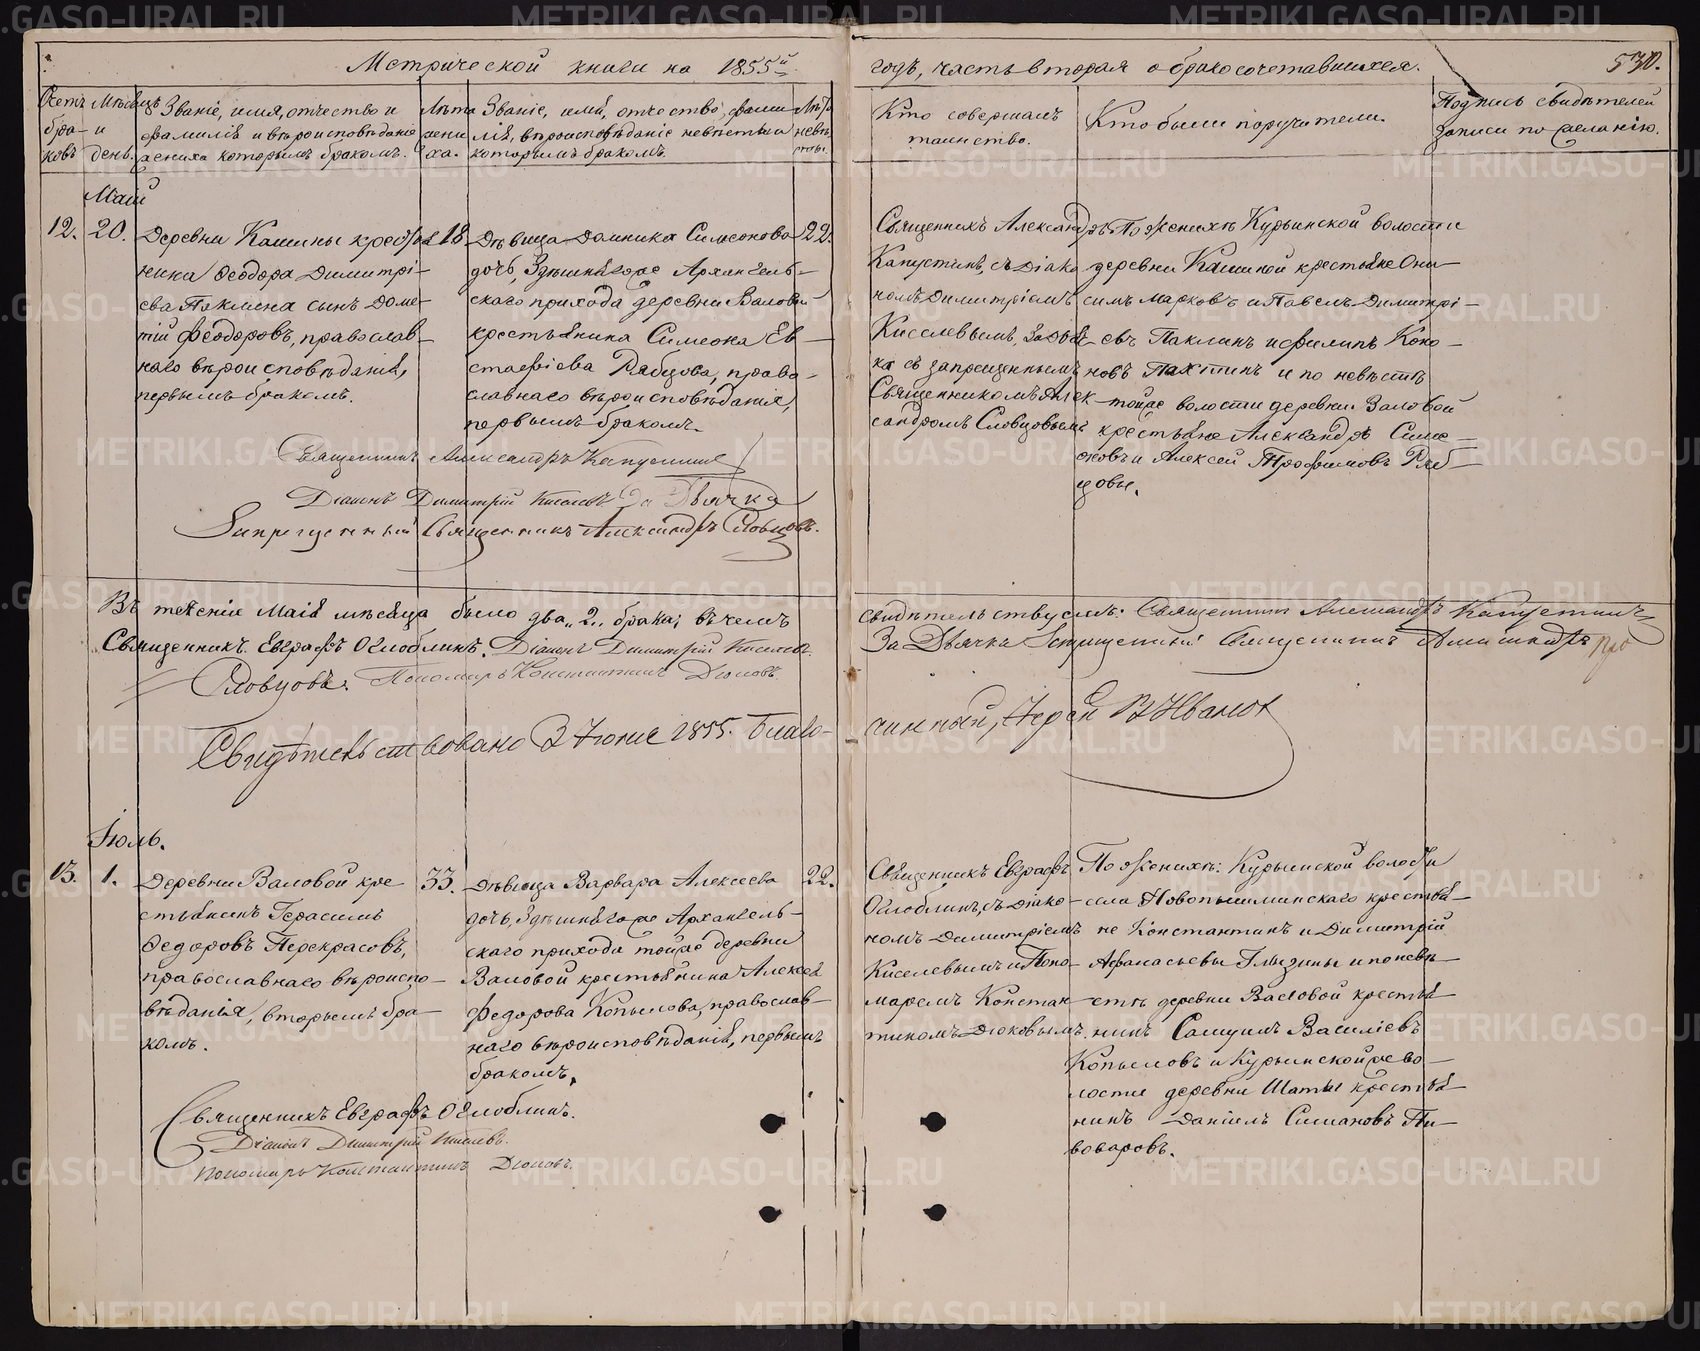 Метрической книги на 1855й
годъ, часть вторая о бракосочетавшихся.
530.
Счетъ бра-ковъ
Мѣсяцъ и день.
Званіе, имя, отчество и
фамилія и вѣроисповѣданіе
жениха которымъ бракомъ.
Лѣта жени ха.
Званіе, имя, отчество, фами
лія, вѣроисповѣданіе невѣсты и
которымъ бракомъ.
Лѣта невѣ, сты.
Кто совершалъ
таинство.
Кто были поручители.
Подпись свидѣтелей
записи по желанію.
Маій
12.
20.
Деревни Кашины кресть
нина Ѳеодора Димитрі-
ева Паклина сынъ Доме-
тій Феодоровъ, православ-
наго вѣроисповѣданія,
первымъ бракомъ.
18
Дѣвица Домника Симеонова
дочь, Здѣшнягоже Архангель-
скаго прихода деревни Валовой
крестьянина Симеона Ев-
стафіева Рябцова, право-
славнаго вѣроисповѣданія,
первымъ бракомъ.
22.
Священникъ Александръ
Капустинъ, съ діако
номъ Димитріемъ
Киселевымъ, За дьяч
ка съ запрещеннымъ
Священникомъ Алек
сандромъ Словцовымъ
По женихѣ Курьинской волости
деревни Кашиной крестьяне Они
симъ Марковъ и Павелъ Димитрі-
евъ Паклинъ и Филипъ Коно-
новъ Пахтинъ и по невѣстѣ
тойже волости деревни Валовой
крестьяне Александръ Симе-
оновъ и Алексей Трофимовъ Ряб-
цовы.
Священникъ Александръ Капустинъ
Діаконъ Димитрій Киселевъ За Дьячка
Запрещенный Священникъ Александръ Словцовъ.
Въ теченіе Маія мѣсяца было два „2„ брака; въ чемъ
свидѣтельствуемъ: Священникъ Александръ Капустинъ
Священникъ Евграфъ Оглоблинъ. Діаконъ Димитрій Киселевъ.
За Дьячка Запрещенный Священникъ Александръ
Словцовъ. Пономарь Константинъ Дюковъ
Свидѣтельствовано 3 Іюня 1855. Благо-
чинный, Іерей В Ивановъ
Іюль.
13.
1.
Деревни Валовой кре
стьянинъ Герасимъ
Ѳедоровъ Перекрасовъ,
православнаго вѣроиспо-
вѣданія, вторымъ бра-
комъ.
33.
Дѣвица Варвара Алексеева
дочь, Здѣшнягоже Архангель-
скаго прихода тойже деревни
Валовой крестьянина Алексея
Федорова Копылова, православ-
наго вѣроисповѣданія, первымъ
бракомъ.
22.
Священникъ Евграфъ
Оглоблинъ, съ Діако-
номъ Димитріемъ
Киселевымъ и Поно-
маремъ Констан
тиномъ Дюковымъ.
По женихѣ: Курьинской волости
села Новопышминскаго крестья-
не Константинъ и Димитрій
Афанасьевы Глызины и по невѣ-
стѣ деревни Валовой крестья
нинъ Самуилъ Василіевъ
Копыловъ и Курьинской же во-
лости деревни Шаты крестья
нинъ Даніилъ Симановъ Пи-
воваровъ.
Священникъ Евграфъ Оглоблинъ.
Діаконъ Димитрій Киселевъ.
Пономарь Константинъ Дюковъ.
METRIKI.GASO-URAL.RU